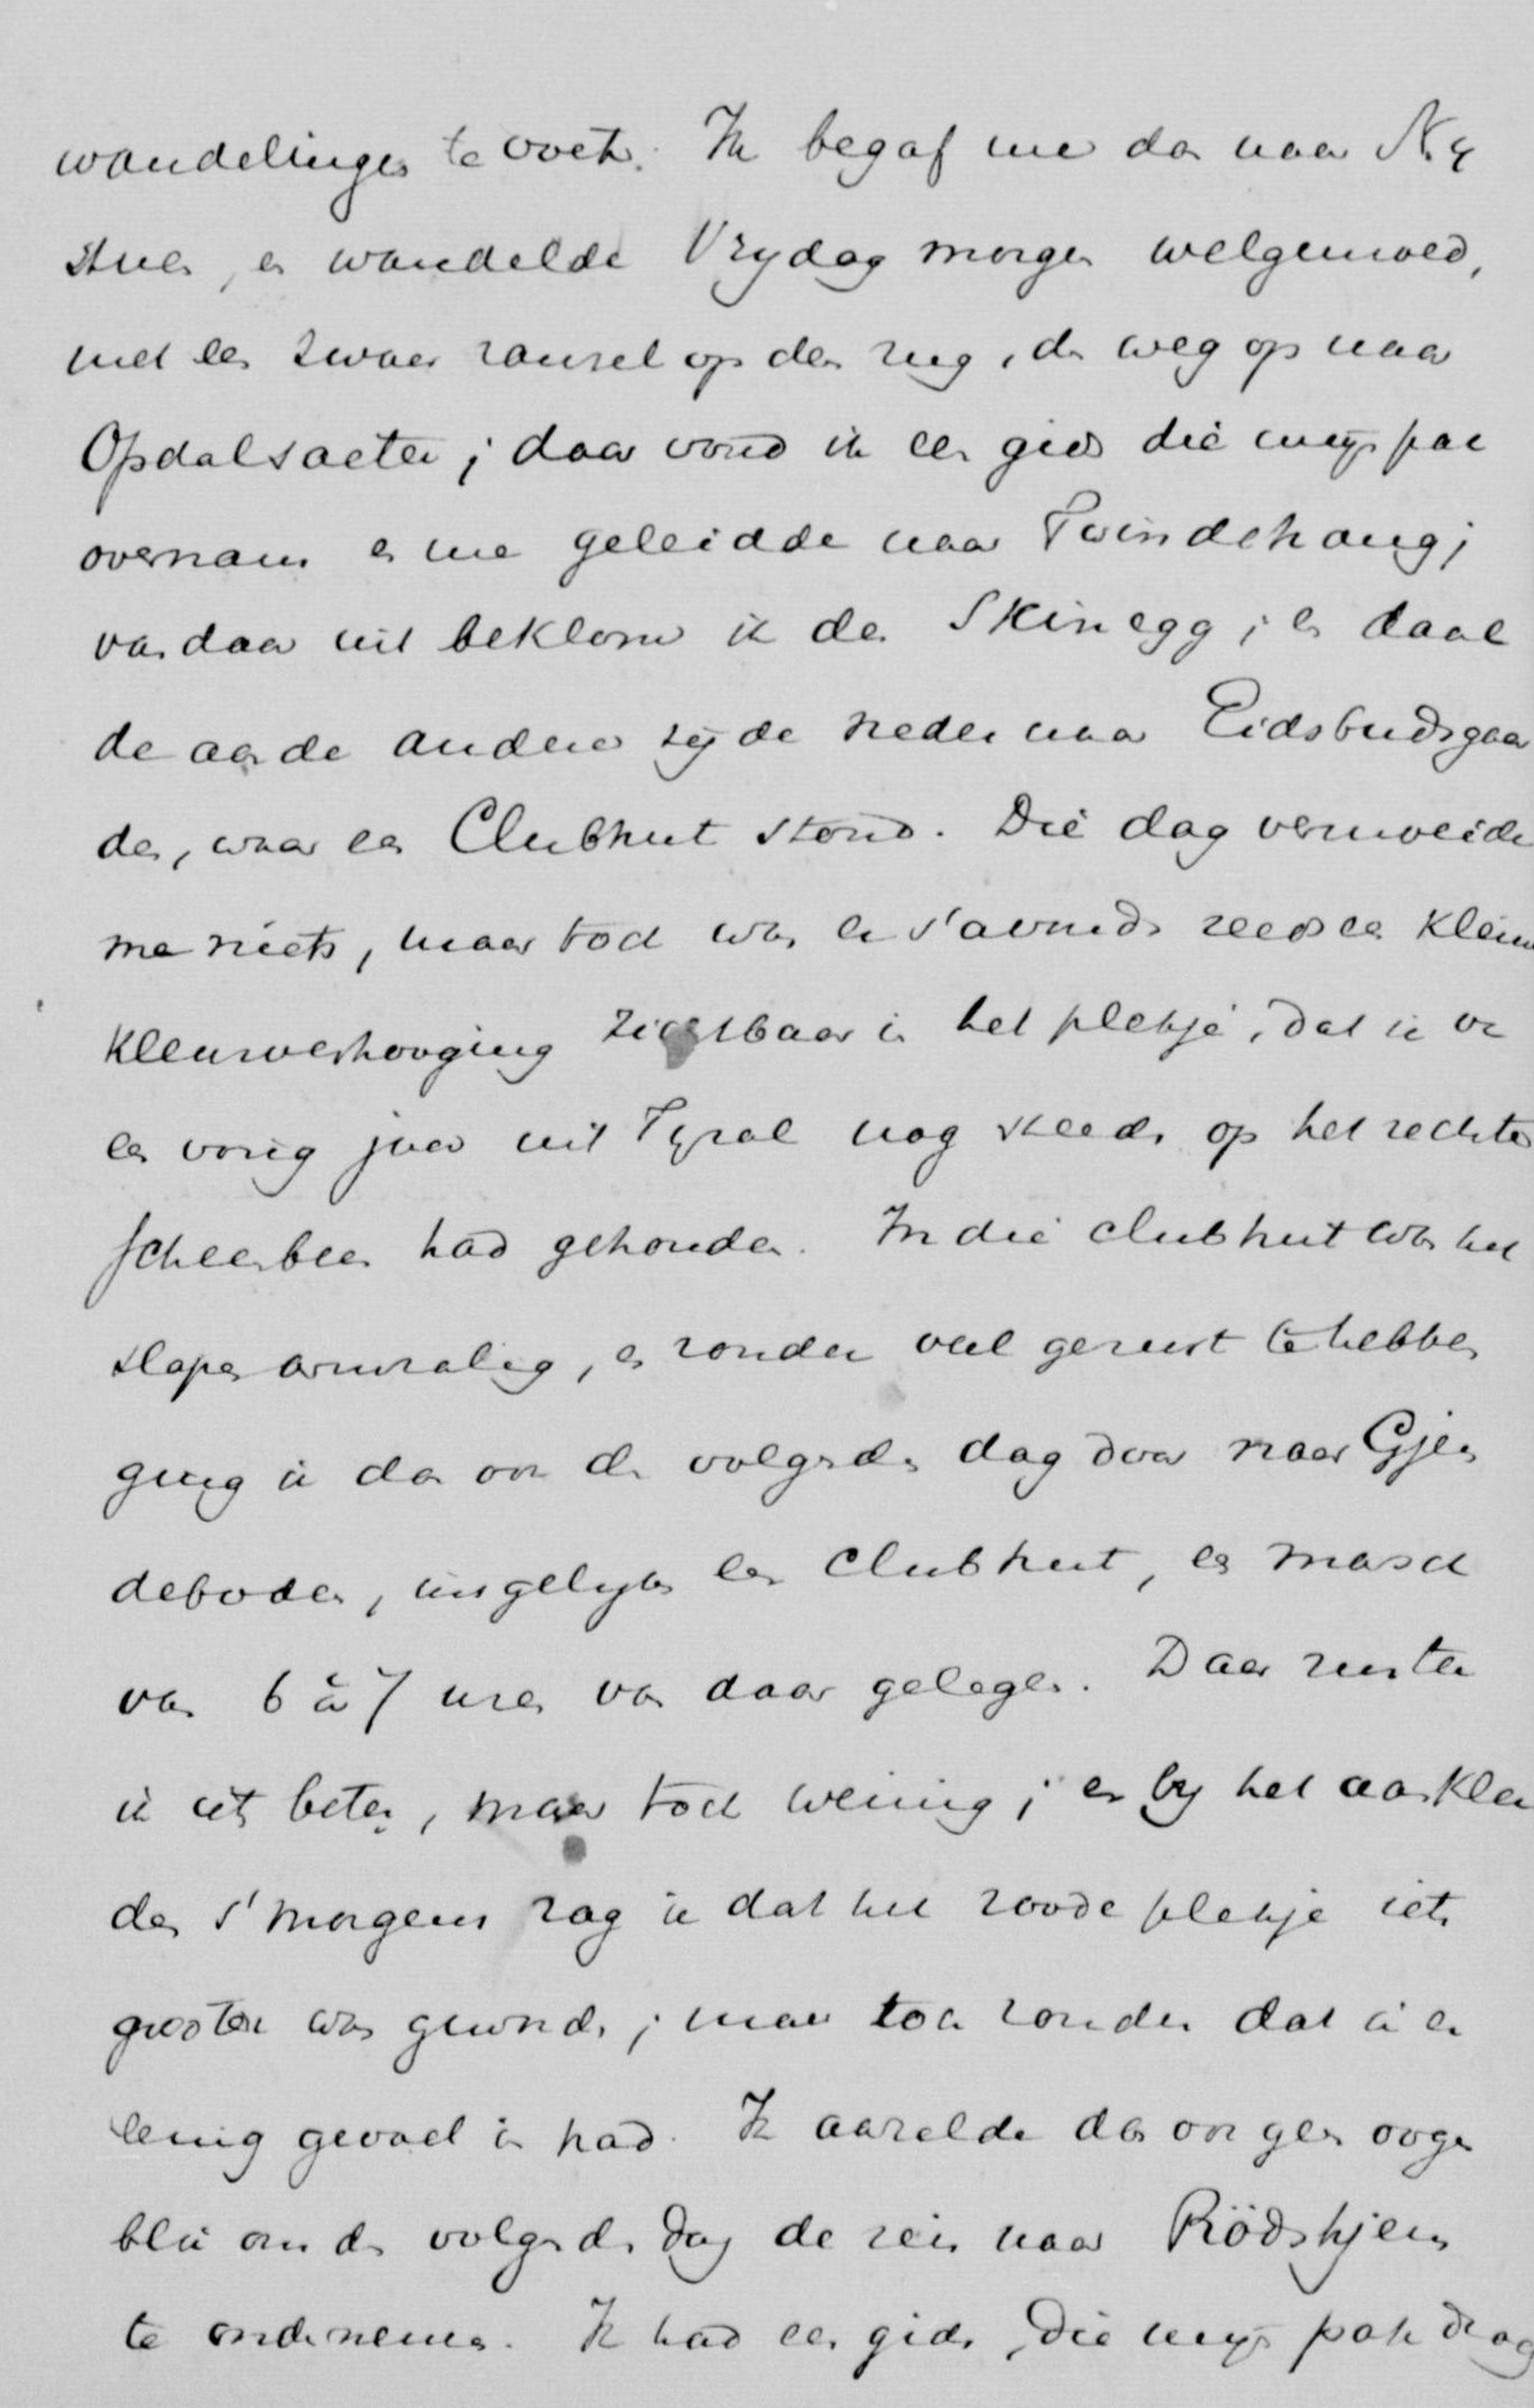 wandelingen te voet. Ik begaf me dan naar Ny
stuen, en wandelde Vrydag morgen welgemoed,
met een zwaar ransel op den rug, de weg op naar
Opdalsaeter; daar vond ik een gids die myn pak
overnam en me geleidde naar Tvindehaug;
van daar uit beklom ik den Skinegg; en daal
de aan de andere zyde neder naar Eidsbudgaar
den, waar een Clubhut stond. Die dag vermoeide
me niets, maar toch was er s'avonds reeds een kleine
kleurverhooging zichtbaar in het plekje, dat ik van
een vorig jaar uit Tyrol nog steeds op het rechter
scheenbeen had gehouden. In die clubhut was het
slapen armzalig, en zonder veel gerust te hebben
ging ik dan ook den volgenden dag door naar Gjen
deboden, insgelyks een clubhut, en marsch
van 6 à 7 uren van daar gelegen. Daar rustte
ik iets beter, maar toch weinig; en by het aankle
den s'morgens zag ik dat het roode plekje iets
grooter was geworden; maar toch zonder dat ik er
eenig gevoel in had. Ik aarzelde dan ook geen oogen
blik om den volgenden dag de reis naar Rödshjem
te ondernemen. Ik had een gids, die myn pak droeg